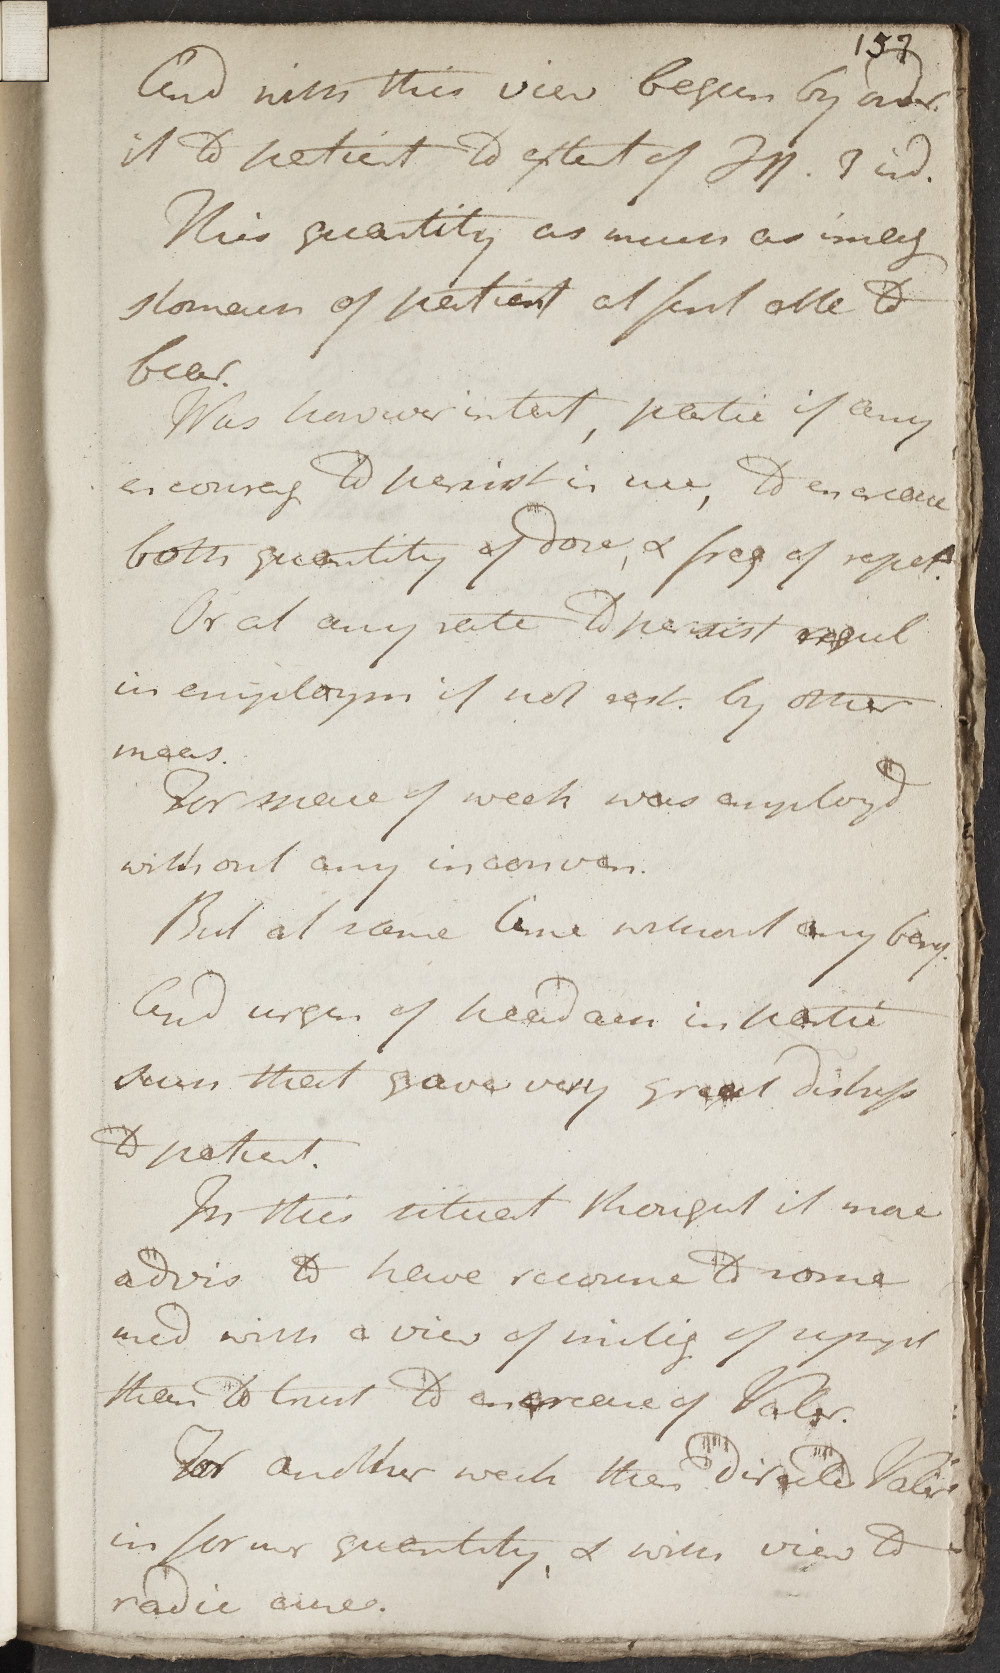 157
And with this view begun by order
it to patient to extent of ʒſſ. 3 ind.
This quantity as much as imag
stomach of patient at first able to
bear.
Was however intent, partic if any
encourag to persist in use, to encrease
both quantity of dose, & freq of repet.
Or at any rate to persist regul
in employm if not rest. by other
meas.
For space of week was employd
without any inconven.
But at same time without any ben.
And urgen of headach in partic
such that gave very great distress
to patient.
In this situat thought it more
advis to have recourse to some
med with a view of mitig of sympt
than to trust to encrease of Valer.
For another week then directed Valer
in former quantity, & with view to
radic cure.